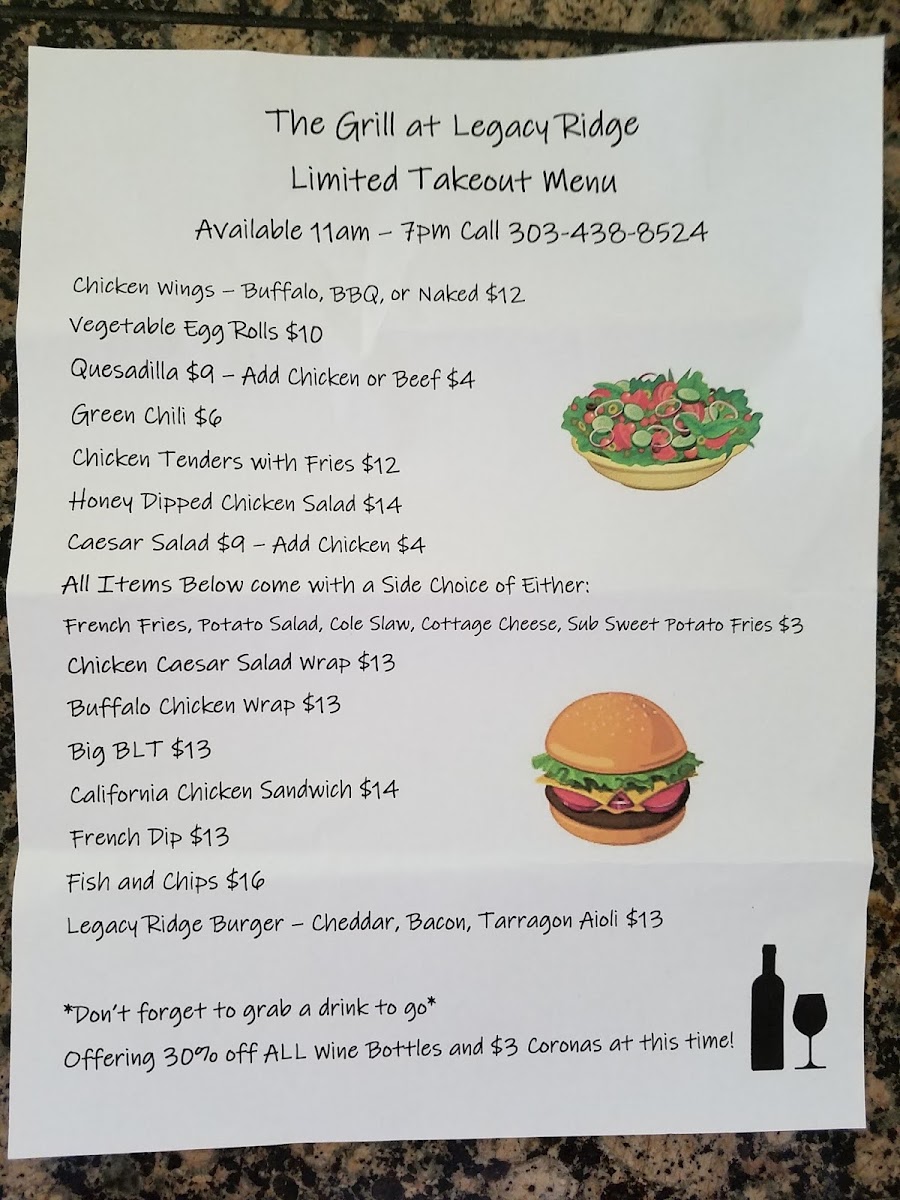 The Grill at Legacy Ridge
Limited Takeout Menu
Available 11am – 7pm Call 303-438-8524
Chicken Wings – Buffalo, BBQ, or Naked $12
Vegetable Egg Rolls $10
Quesadilla $9 – Add Chicken or Beef $4
Green Chili $6
Chicken Tenders with Fries $12
Honey Dipped Chicken Salad $14
Caesar Salad $9 – Add Chicken $4
All Items Below come with a Side Choice of Either:
French Fries, Potato Salad, Cole Slaw, Cottage Cheese, Sub Sweet Potato Fries $3
Chicken Caesar Salad Wrap $13
Buffalo Chicken Wrap $13
Big BLT $13
California Chicken Sandwich $14
French Dip $13
Fish and Chips $16
Legacy Ridge Burger – Cheddar, Bacon, Tarragon Aioli $13
*Don't forget to grab a drink to go*
Offering 30% off ALL Wine Bottles and $3 Coronas at this time!